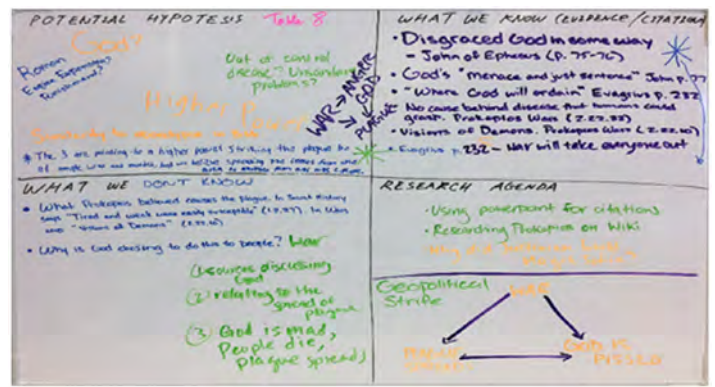 POTENTIAL HYPOTESIS Table 8
God?
Roman
Empire Expansion?
Punishment?
Out of control
disease? Unsanitary
problems?
WAR → ANGERE
GOD
PLAGUE
Higher Power
* The 3 are pointing to a higher power striking the plague
WHAT WE KNOW (EVIDENCE/CITATION)
• Disgraced God in some way
- John of Ephesus (P. 75-76)
• God's "menace and just sentence" John p. 77
• "Where God will ordain" Evagrius p. 232
No cause behind disease that humans could
grasp. Prokopios Wars (2.22.22)
• Visions of Demons. Prokopios Wars (2.22.10)
• Evagrius p. 232 - War will take everyone out
WHAT WE DON'T KNOW
• What Prokopios believed causes the plague. In Secret History
says "Tired and weak were easily susceptible" In Wars
"visions of Demons" (2.22.10)
• Why is God chosing to do this to people? War
(1) sources discussing
God
(2) relating to the
spread of
plague
(3) God is mad,
People die,
plague spreads
RESEARCH AGENDA
• Using powerpoint for citations
• Researching Prokopios on Wiki
Geopolitical
Strife
WAR
GOD IS
PISSED